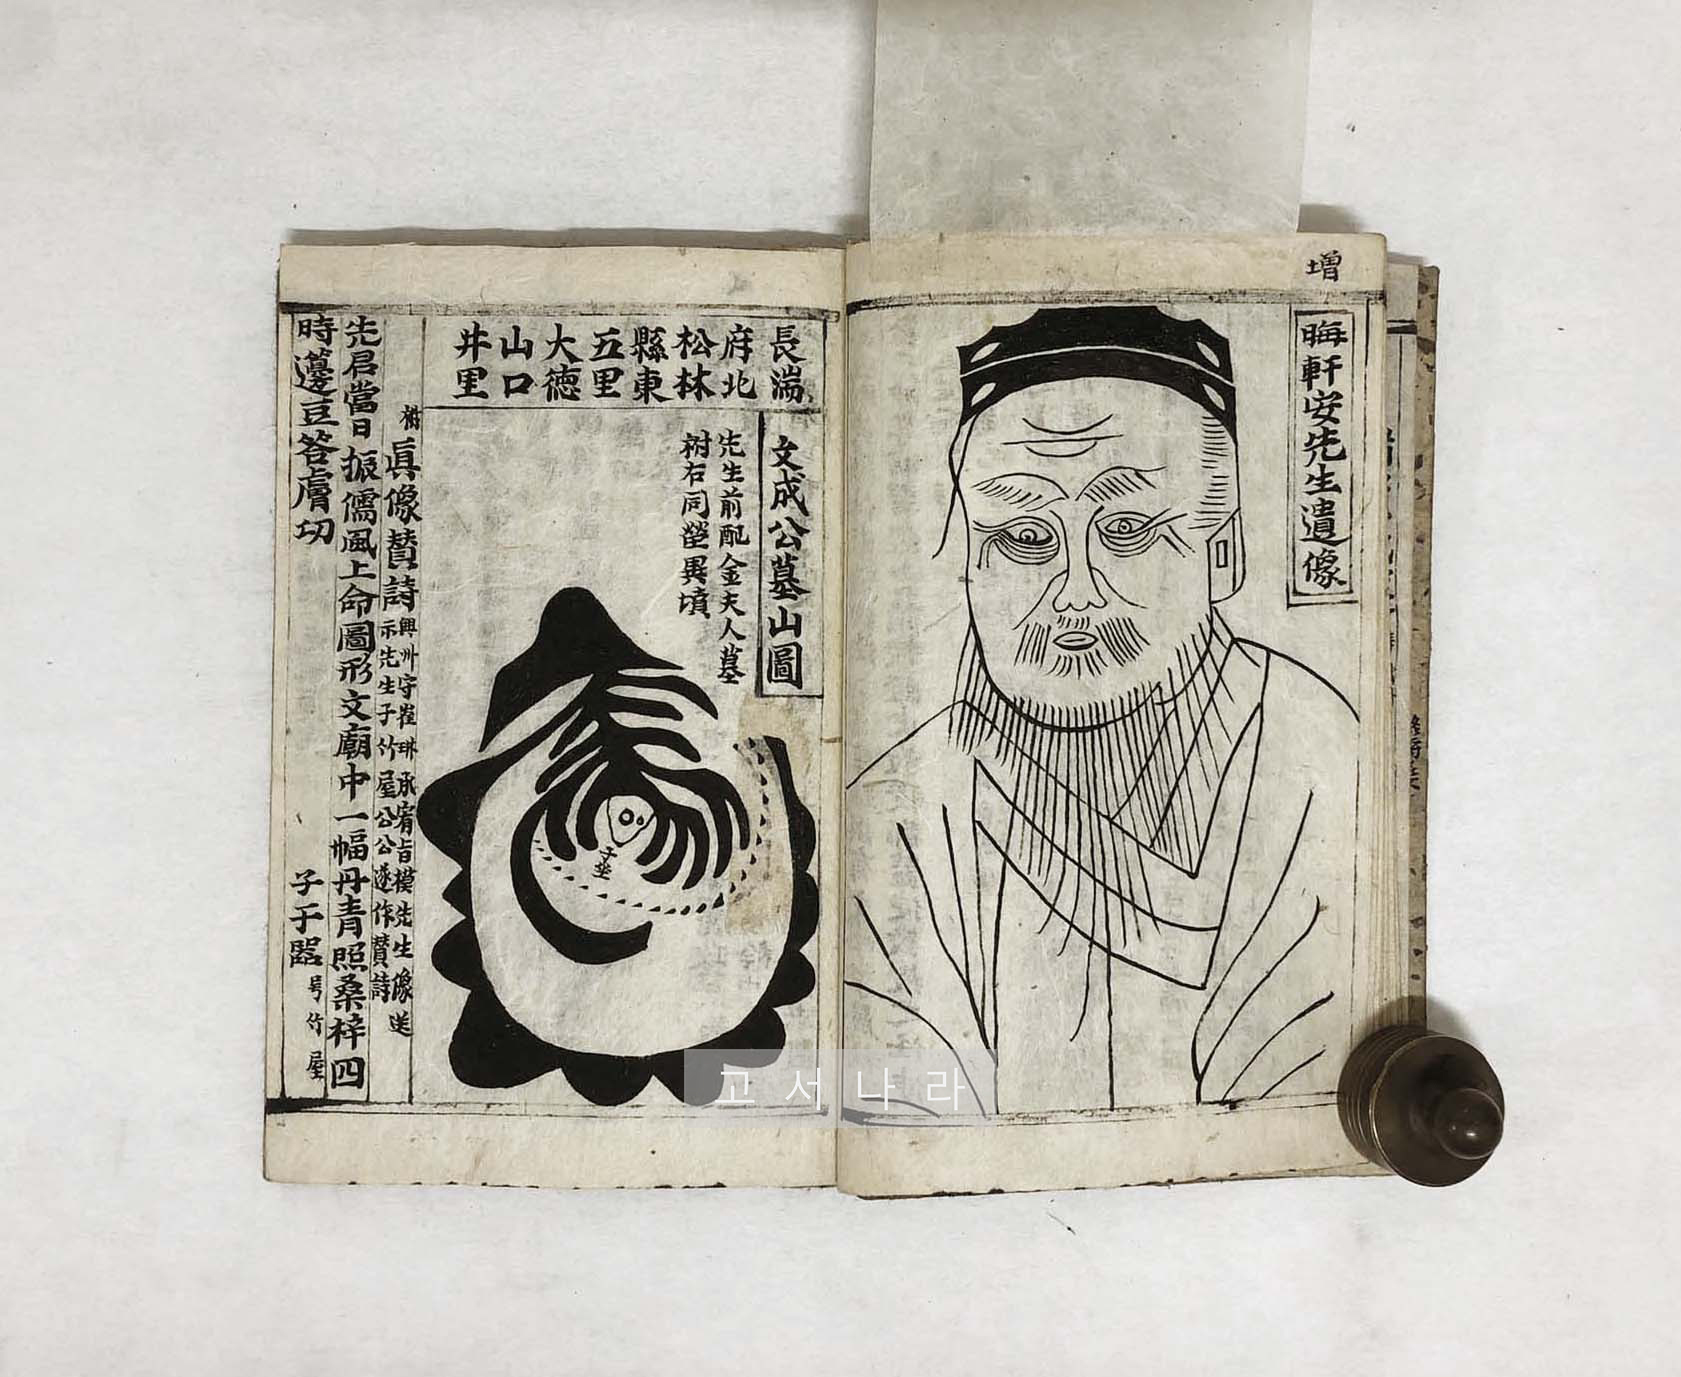 增
晦軒安先生遺像
長湍
府北
松林
縣東
五里
大德
山口
井里
文成公墓山圖
先生前配金夫人墓
祔右同塋異墳
子坐
附
眞像贊詩
興州守崔琳承宥旨模先生像送
示先生子竹屋公公遂作贊詩
先君當日振儒風上命圖形文廟中一幅丹青照桑梓四
時籩豆答膚功
子于器
号竹屋
고서나라